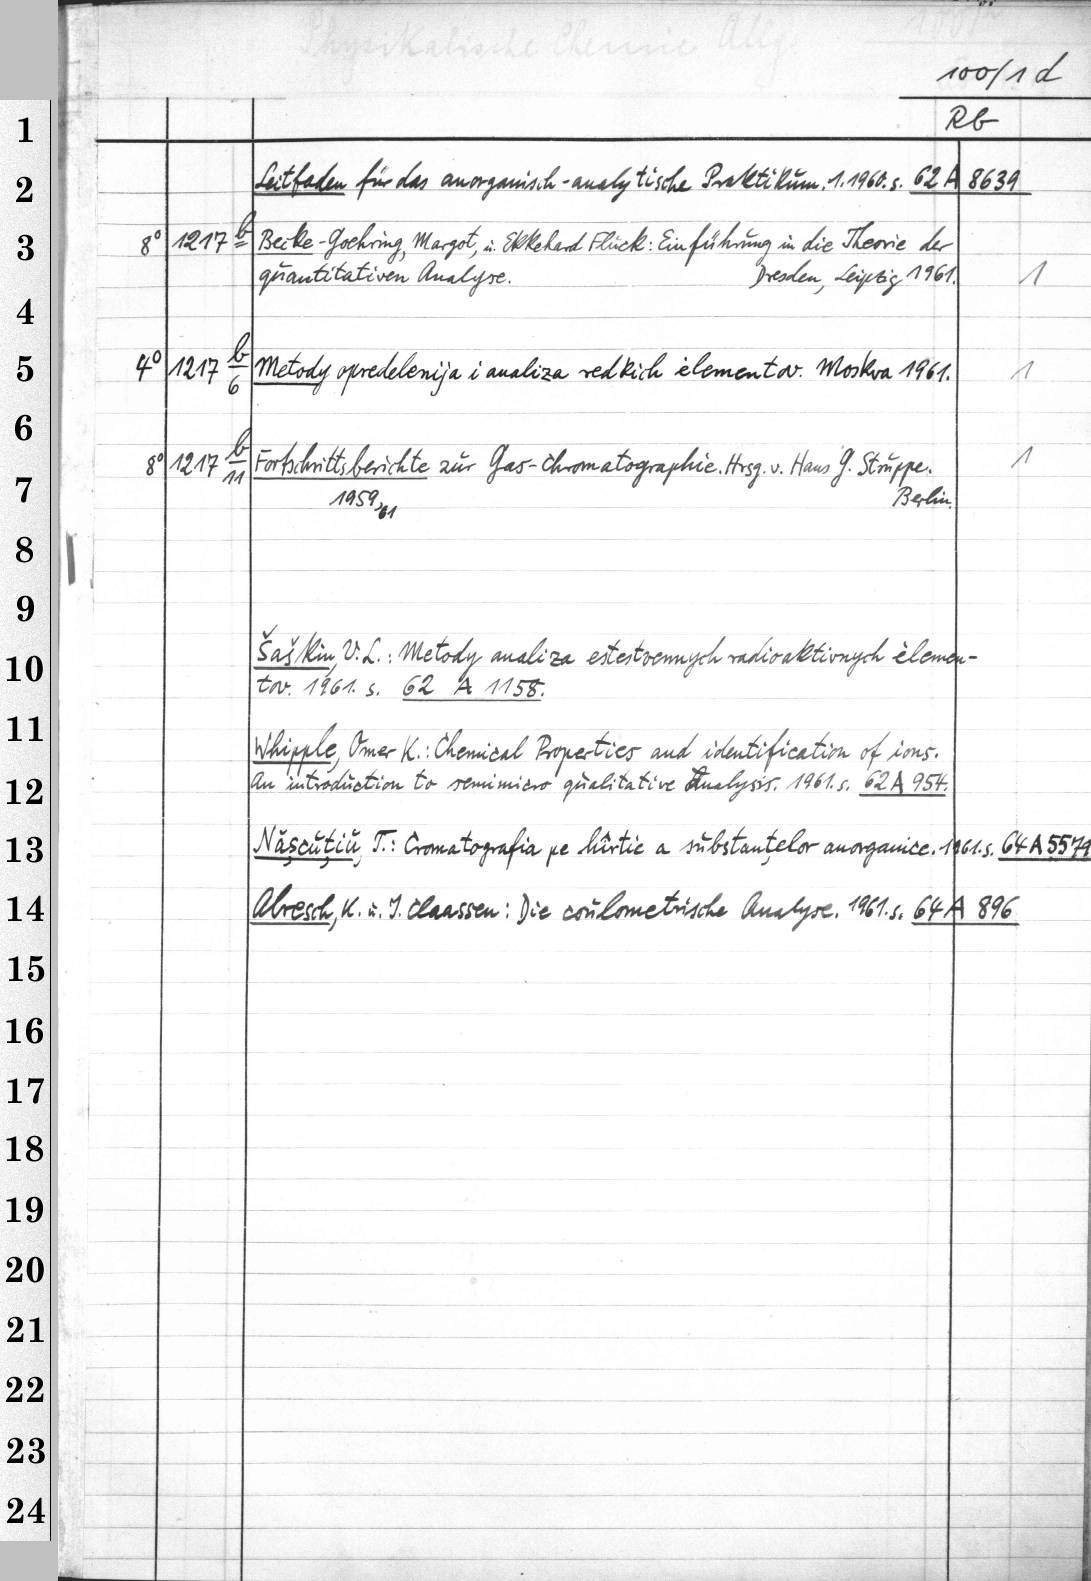 Physikalische Chemie Allg.
100/1 d
Rb
1
2
Leitfaden für das anorganisch-analytische Praktikum. 1. 1960. s. 62 A 8639
3
8° 1217 b Becke-Goehring, Margot, u. Ekkehard Fluck: Einführung in die Theorie der
quantitativen Analyse. Dresden, Leipzig 1961. 1
4
5
4° 1217 b/6 Metody opredelenija i analiza redkich ėlementov. Moskva 1961. 1
6
8° 1217 b/11 Fortschrittsberichte zur Gas-Chromatographie. Hrsg. v. Hans G. Struppe. 1
7
1959, 61 Berlin.
8
9
Šaškin, V. L.: Metody analiza estestvennych radioaktivnych ėlemen-
10
tov. 1961. s. 62 A 1158.
11
Whipple, Omer K.: Chemical Properties and identification of ions.
12
An introduction to semimicro qualitative Analysis. 1961. s. 62 A 954.
13
Nășcuțiu, T.: Cromatografia pe hîrtie a substanțelor anorganice. 1961. s. 64 A 5579
14
Abresch, K. u. I. Claassen: Die coulometrische Analyse. 1961. s. 64 A 896
15
16
17
18
19
20
21
22
23
24